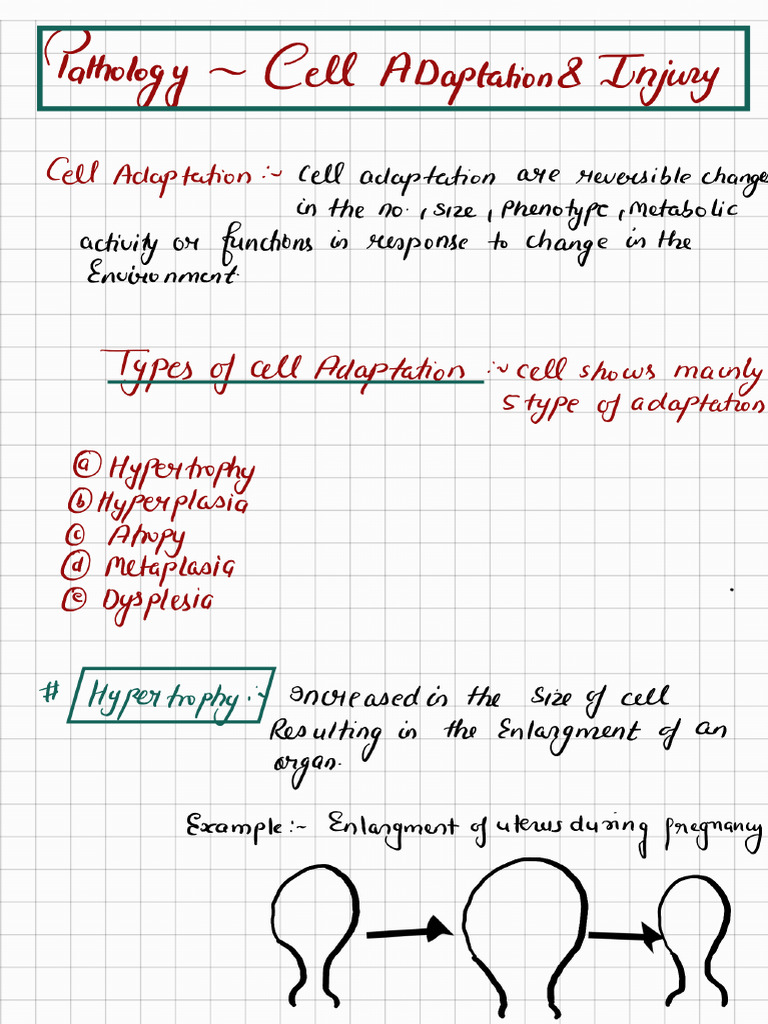 Pathology ~ Cell Adaptation & Injury
Cell Adaptation :- Cell adaptation are reversible changes
in the no., size, phenotype, metabolic
activity or functions in response to change in the
Environment.
Types of cell Adaptation :- cell shows mainly
5 type of adaptation
(a) Hypertrophy
(b) Hyperplasia
(c) Atropy
(d) Metaplasia
(e) Dysplesia
# Hypertrophy :- Increased in the size of cell
Resulting in the Enlargment of an
organ.
Example :- Enlargment of uterus during pregnancy